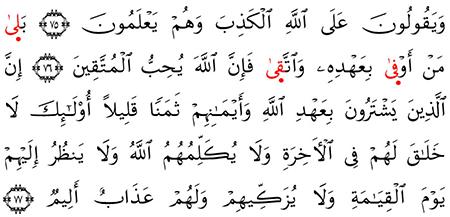 وَيَقُولُونَ عَلَى ٱللَّهِ ٱلْكَذِبَ وَهُمْ يَعْلَمُونَ ۝٧٥ بَلَىٰ
مَنْ أَوْفَىٰ بِعَهْدِهِۦ وَٱتَّقَىٰ فَإِنَّ ٱللَّهَ يُحِبُّ ٱلْمُتَّقِينَ ۝٧٦ إِنَّ
ٱلَّذِينَ يَشْتَرُونَ بِعَهْدِ ٱللَّهِ وَأَيْمَـٰنِهِمْ ثَمَنًا قَلِيلاً أُو۟لَـٰٓئِكَ لَا
خَلَـٰقَ لَهُمْ فِى ٱلْأَخِرَةِ وَلَا يُكَلِّمُهُمُ ٱللَّهُ وَلَا يَنظُرُ إِلَيْهِمْ
يَوْمَ ٱلْقِيَـٰمَةِ وَلَا يُزَكِّيهِمْ وَلَهُمْ عَذَابٌ أَلِيمٌ ۝٧٧